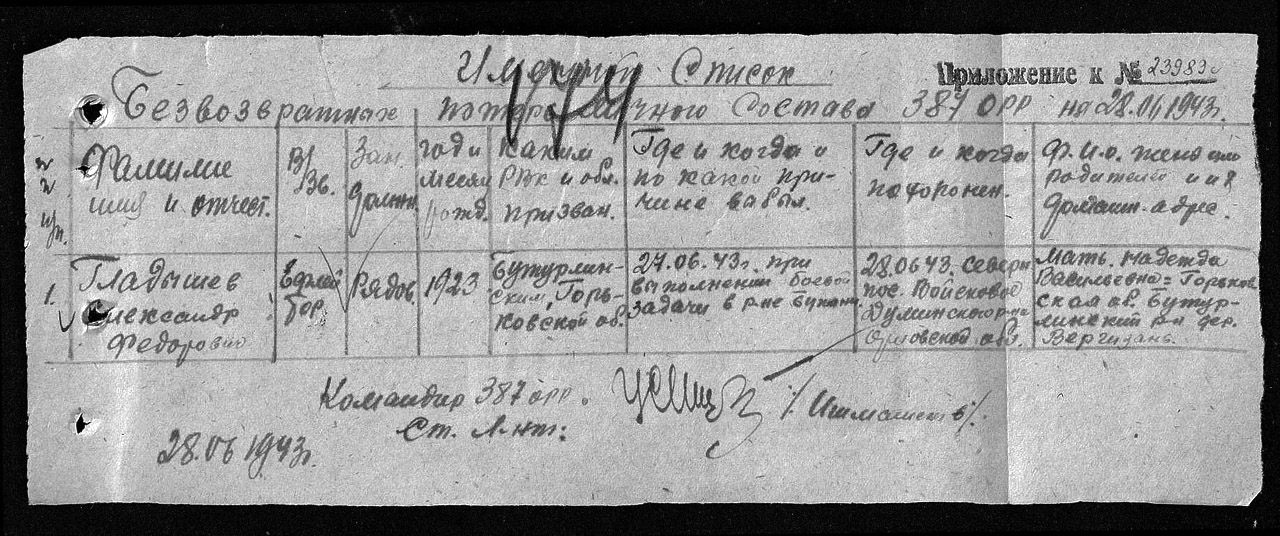 Именной Список
Приложение к № 23983с
174
Безвозвратных потерь личного состава 387 ОРР на 28.06 1943г.
Фамилие
имя и отчест.
В/
Зв.
Зан.
должн.
год и
месяц
рожд.
Каким
РВК и обл.
призван.
Где и когда и
по какой при-
чине выбыл.
Где и когда
похоронен.
Ф.И.О. жены или
родителей и их
домашн. адрес.
1.
Гладышев
Александр
Федорович
Рядов.
1923
Бутурлин-
ским, Горь-
ковской об.
27.06.43г. при
выполнении боевой
задачи в р-не
28.06 43. север
пос. Войсково
Думинского р-на
Орловской обл.
Мать. Надежда
Васильевна = Горьков
ская об. Бутур-
линский р-н дер.
Вергизань.
Командир 387 орр.
Ст. Л-нт:
28.06 1943г.